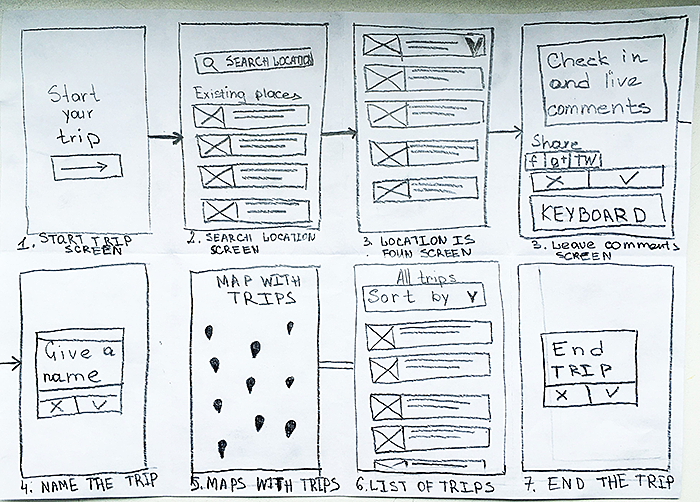 Start
your
trip
1. START TRIP
SCREEN
SEARCH LOCATION
Existing places
2. SEARCH LOCATION
SCREEN
3. LOCATION IS
FOUN SCREEN
Check in
and live
comments
Share
f g+ TW
X ✓
KEYBOARD
3. Leave comments
SCREEN
Give a
name
X ✓
4. NAME THE TRIP
MAP WITH
TRIPS
5. MAPS WITH TRIPS
All trips
Sort by
6. LIST OF TRIPS
End
TRIP
X ✓
7. END THE TRIP